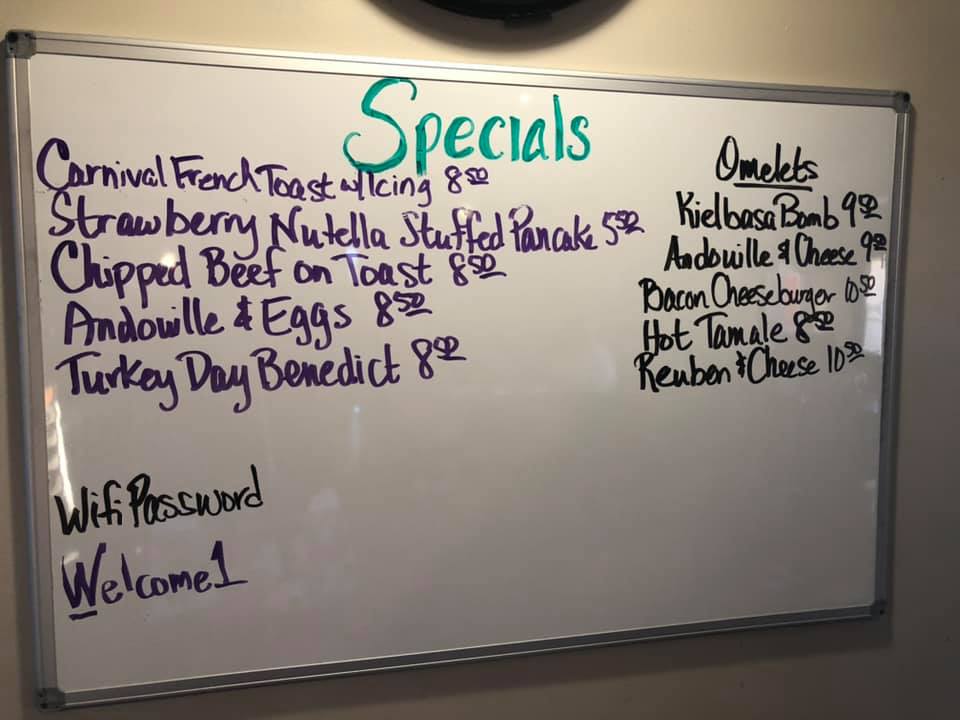 Specials
Carnival French Toast w/Icing 8.50
Strawberry Nutella Stuffed Pancake 5.50
Chipped Beef on Toast 8.50
Andouille & Eggs 8.50
Turkey Day Benedict 8.50
Omelets
Kielbasa Bomb 9.50
Andouille & Cheese 9.50
Bacon Cheeseburger 10.50
Hot Tamale 8.50
Reuben & Cheese 10.50
Wifi Password
Welcome1